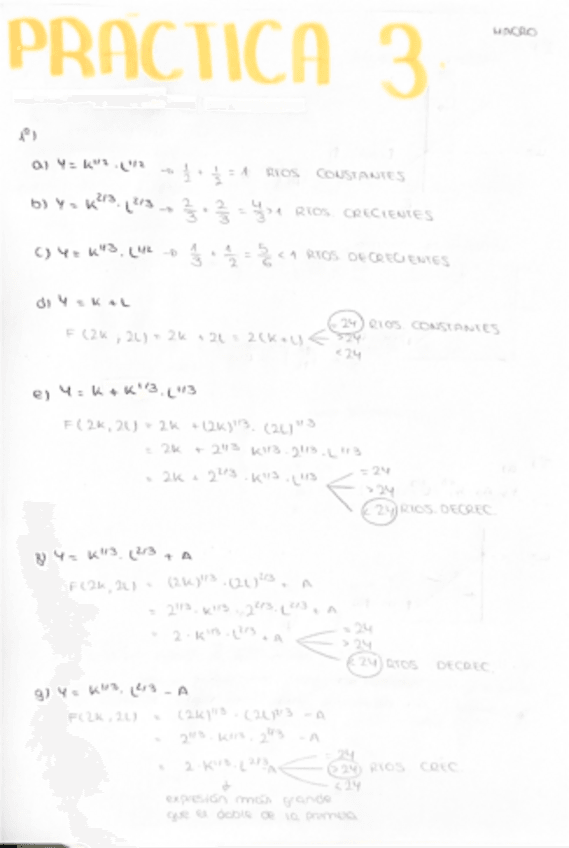 PRÁCTICA 3.
MACRO
1º)
a) Y = K^1/2 · L^1/2 → 1/2 + 1/2 = 1 RTOS CONSTANTES
b) Y = K^2/3 · L^2/3 → 2/3 + 2/3 = 4/3 > 1 RTOS. CRECIENTES
c) Y = K^1/3 · L^1/2 → 1/3 + 1/2 = 5/6 < 1 RTOS DECRECIENTES
d) Y = K + L
F(2K, 2L) = 2K + 2L = 2(K+L)
= 2Y RTOS CONSTANTES
> 2Y
< 2Y
e) Y = K + K^1/3 · L^1/3
F(2K, 2L) = 2K + (2K)^1/3 · (2L)^1/3
= 2K + 2^1/3 K^1/3 · 2^1/3 · L^1/3
= 2K + 2^2/3 · K^1/3 · L^1/3
= 2Y
> 2Y
< 2Y RTOS. DECREC.
Y = K^1/3 · L^2/3 + A
F(2K, 2L) = (2K)^1/3 · (2L)^2/3 + A
= 2^1/3 · K^1/3 · 2^2/3 · L^2/3 + A
= 2 · K^1/3 · L^2/3 + A
= 2Y
> 2Y
< 2Y RTOS DECREC.
g) Y = K^1/3 · L^2/3 - A
F(2K, 2L) = (2K)^1/3 · (2L)^2/3 - A
= 2^1/3 · K^1/3 · 2^2/3 - A
= 2 · K^1/3 · L^2/3 - A
= 2Y
> 2Y RTOS CREC.
< 2Y
expresión más grande
que el doble de la primera